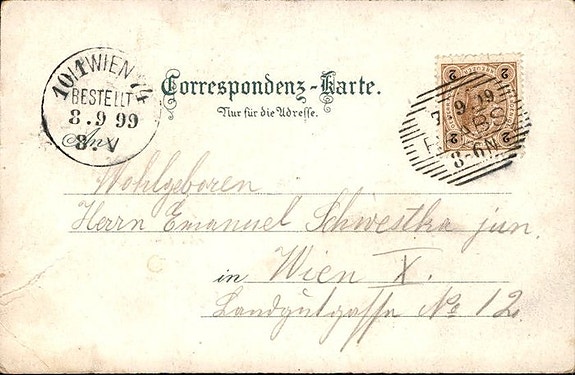 10/1 WIEN 74
BESTELLT
8.9.99
8.V
Correspondenz-Karte.
Nur für die Adresse.
2 2
2 2
9 99
8-6N
Wohlgeboren
Herrn Emanuel Schwestka jun.
in Wien X.
Landgutgasse No 12.